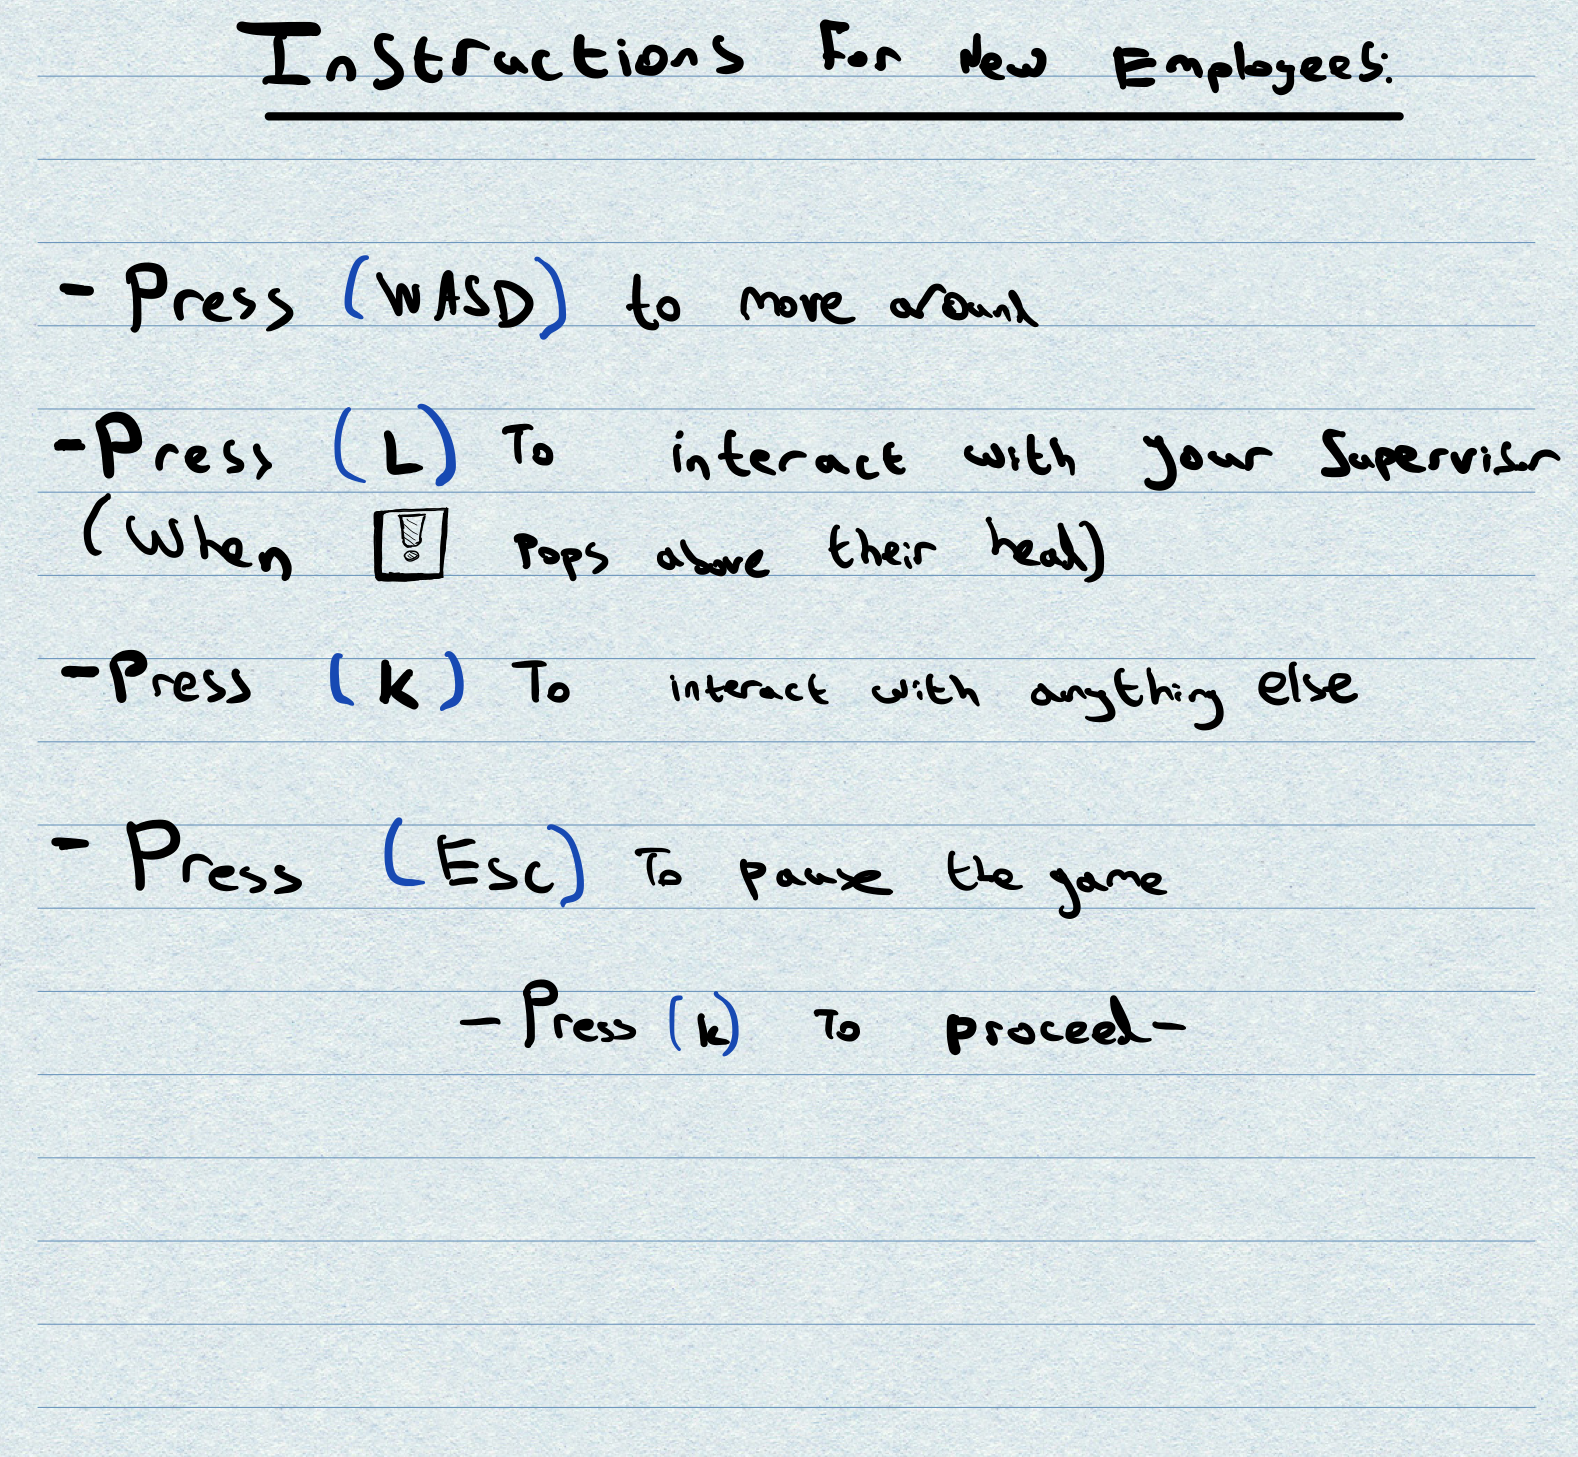 Instructions For New Employees:
- Press (WASD) to move around
- Press (L) To interact with your Supervisor
(When ! pops above their head)
- Press (k) To interact with anything else
- Press (Esc) To pause the game
- Press (k) To proceed -